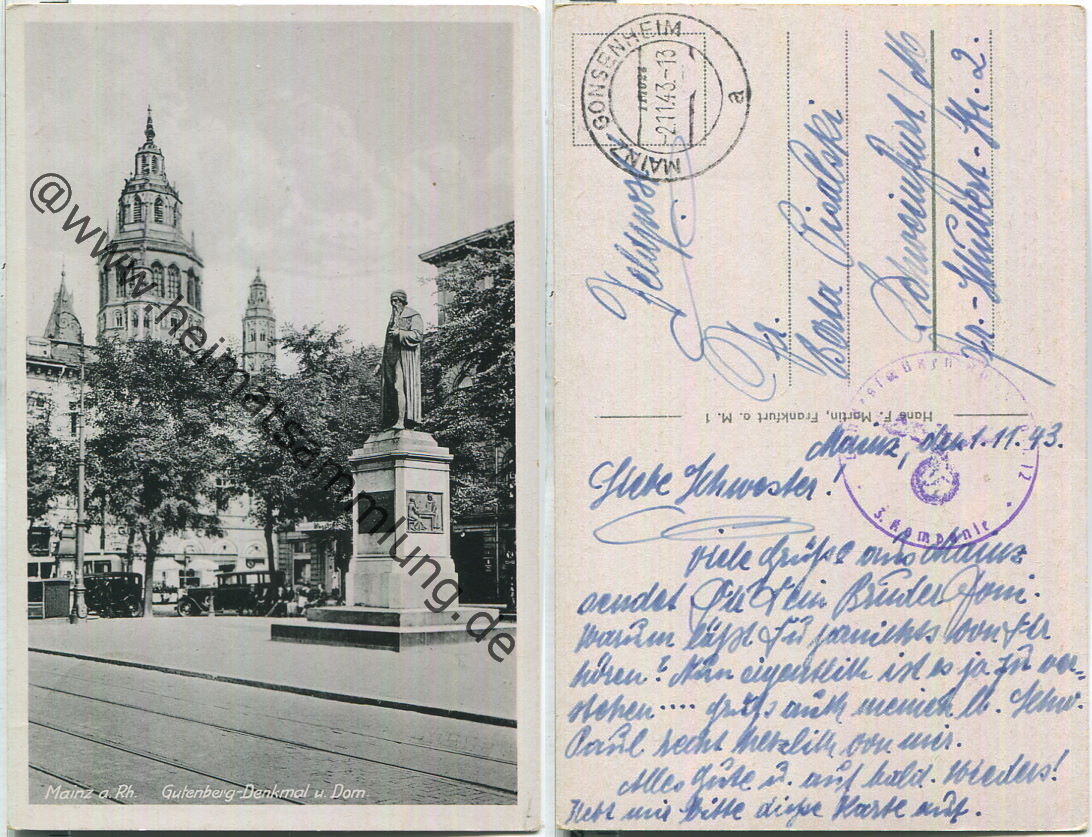 @www.heimatsammlung.de
Mainz a. Rh. Gutenberg-Denkmal u. Dom.
MAINZ-GONSENHEIM
-2.11.43.-13
a
Feldpost
Fr.
Berta
Schweinfurt/M
Str. 2.
Hans F. Martin, Frankfurt a. M. 1
3. Kompanie
12
Mainz, den 1. 11. 43.
Liebe Schwester!
Viele Grüße aus Mainz
sendet Dir Dein Bruder Toni.
Warum läßt Du garnichts von Dir
hören? Nun eigentlich ist es ja zu ver-
stehen .... grüß auch meinen lb. Schw.
Paul recht herzlich von mir.
Alles Gute u. auf bald. Wieders!
Hebt mir bitte diese Karte auf.